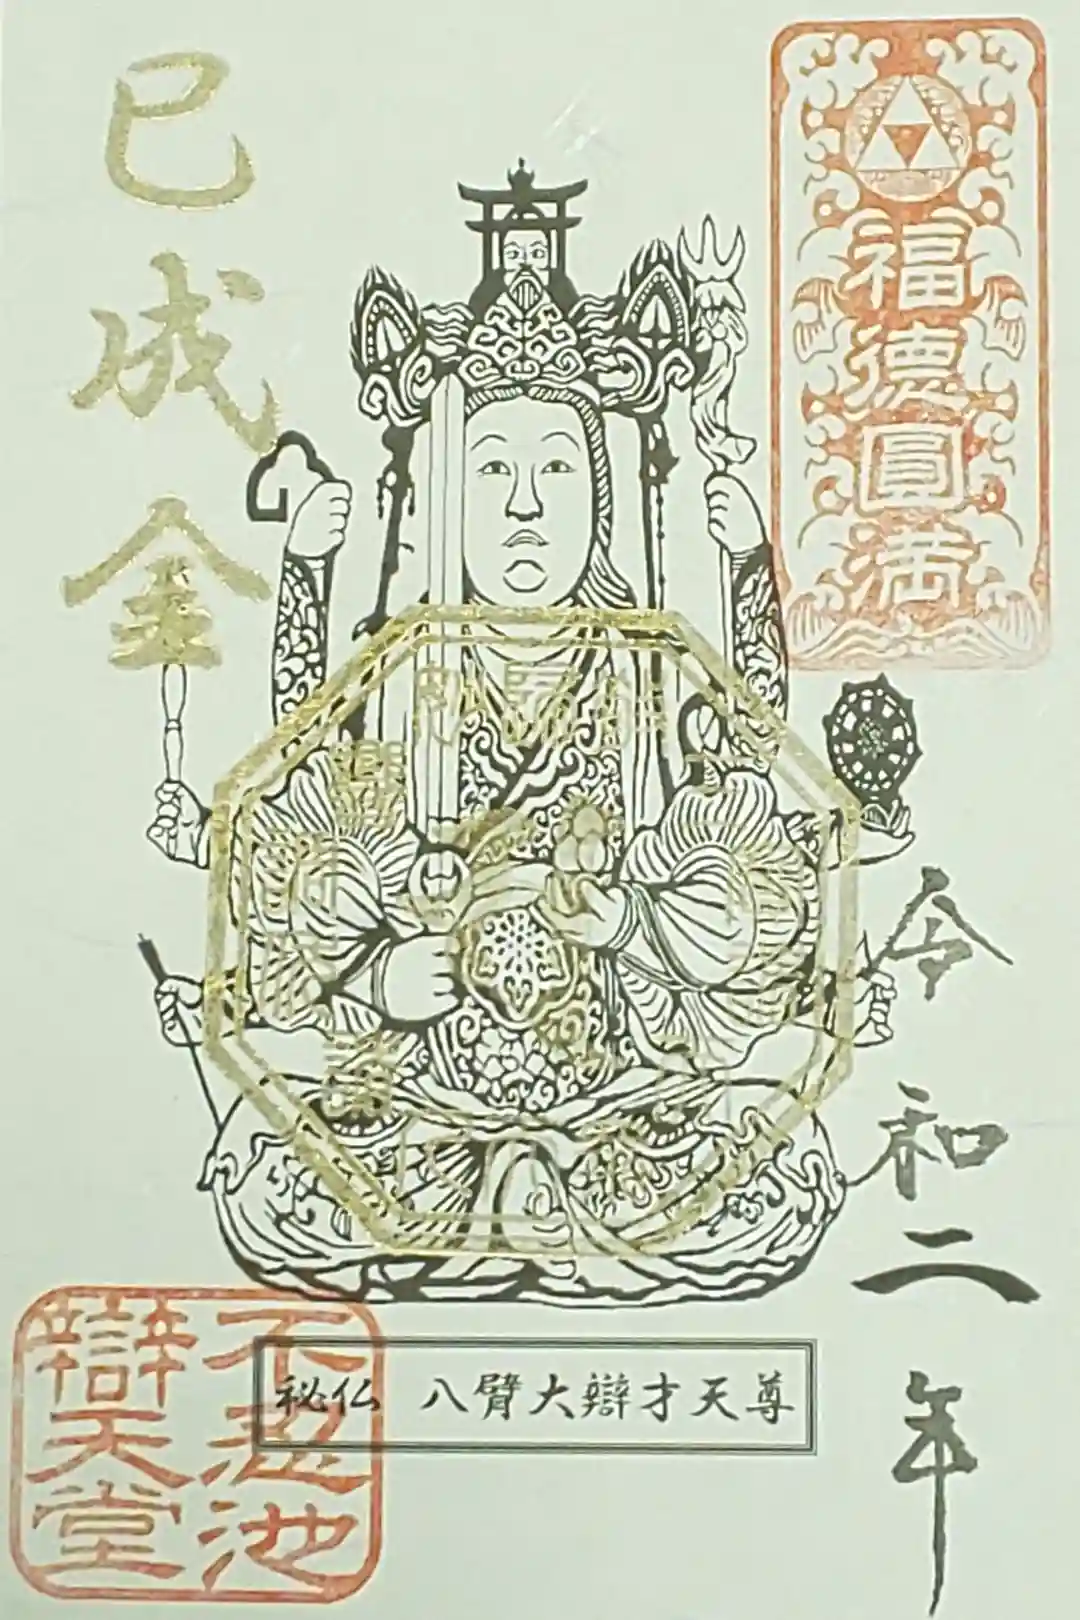 福德圓満
令和二年
巳成金
秘仏 八臂大辯才天尊
不忍池
辯天堂